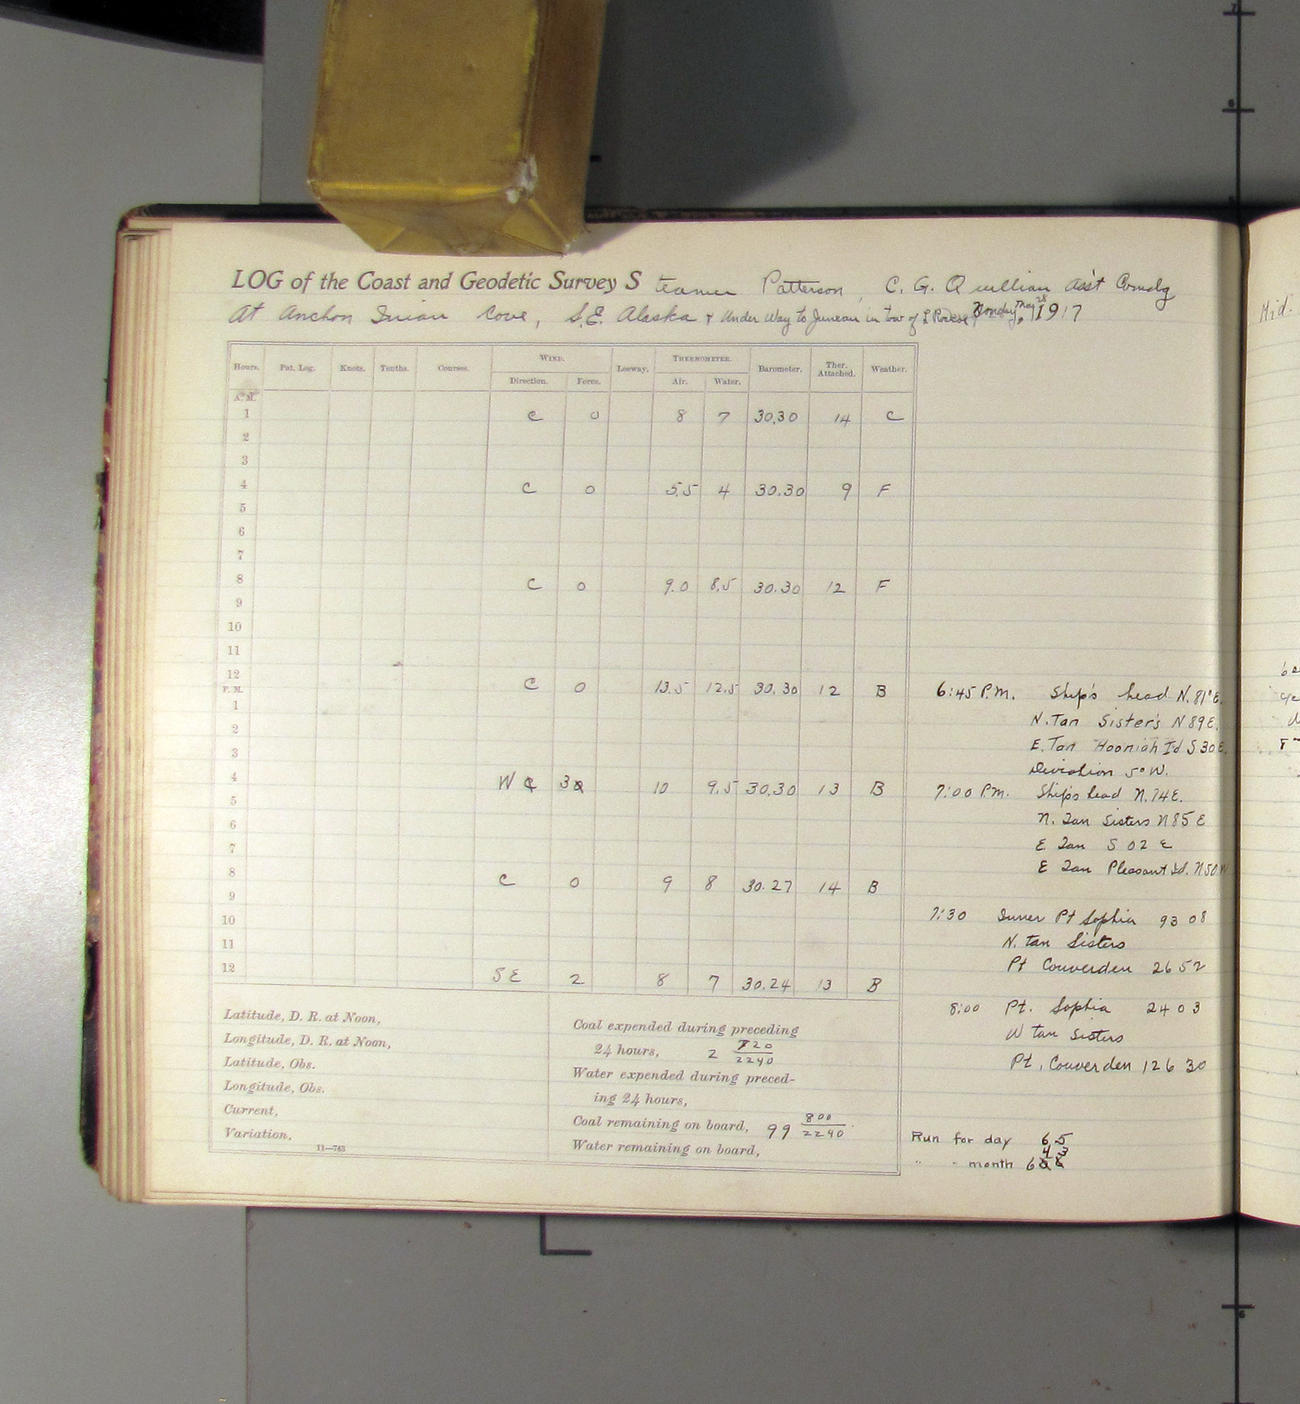 LOG of the Coast and Geodetic Survey Steamer Patterson, C. G. Quillian Ass't Comdg
At Anchor Inian Cove, S.E. Alaska & Under Way to Juneau in tow of Monday, May 28 1917
Hours. Pat. Log. Knots. Tenths. Courses. WIND. Direction. Force. Leeway. THERMOMETER. Air. Water. Barometer. Ther. Attached. Weather.
A. M.
1 C 0 8 7 30.30 14 C
2
3
4 C 0 5.5 4 30.30 9 F
5
6
7
8 C 0 9.0 8.5 30.30 12 F
9
10
11
12 C 0 13.5 12.5 30.30 12 B
P. M.
1
2
3
4 W 3 10 9.5 30.30 13 B
5
6
7
8 C 0 9 8 30.27 14 B
9
10
11
12 SE 2 8 7 30.24 13 B
6:45 P.M. Ship's head N. 81° E.
N. Tan Sister's N 89 E.
E. Tan Hooniah Id S 30 E.
Deviation 5° W.
7:00 P.M. Ships head N. 74 E.
N. Tan Sisters N 85 E
E. Tan S 02 E
E Tan Pleasant Id. N 50 W
7:30 Inner Pt Sophia 93 08
N. tan Sisters
Pt Couverden 26 52
8:00 Pt. Sophia 24 03
W tan Sisters
Pt. Couverden 126 30
Run for day 65
" " month 643
Latitude, D. R. at Noon,
Longitude, D. R. at Noon,
Latitude, Obs.
Longitude, Obs.
Current,
Variation,
11—763
Coal expended during preceding
24 hours, 2 720/2240
Water expended during preced-
ing 24 hours,
Coal remaining on board, 99 800/2240
Water remaining on board,
Mid.